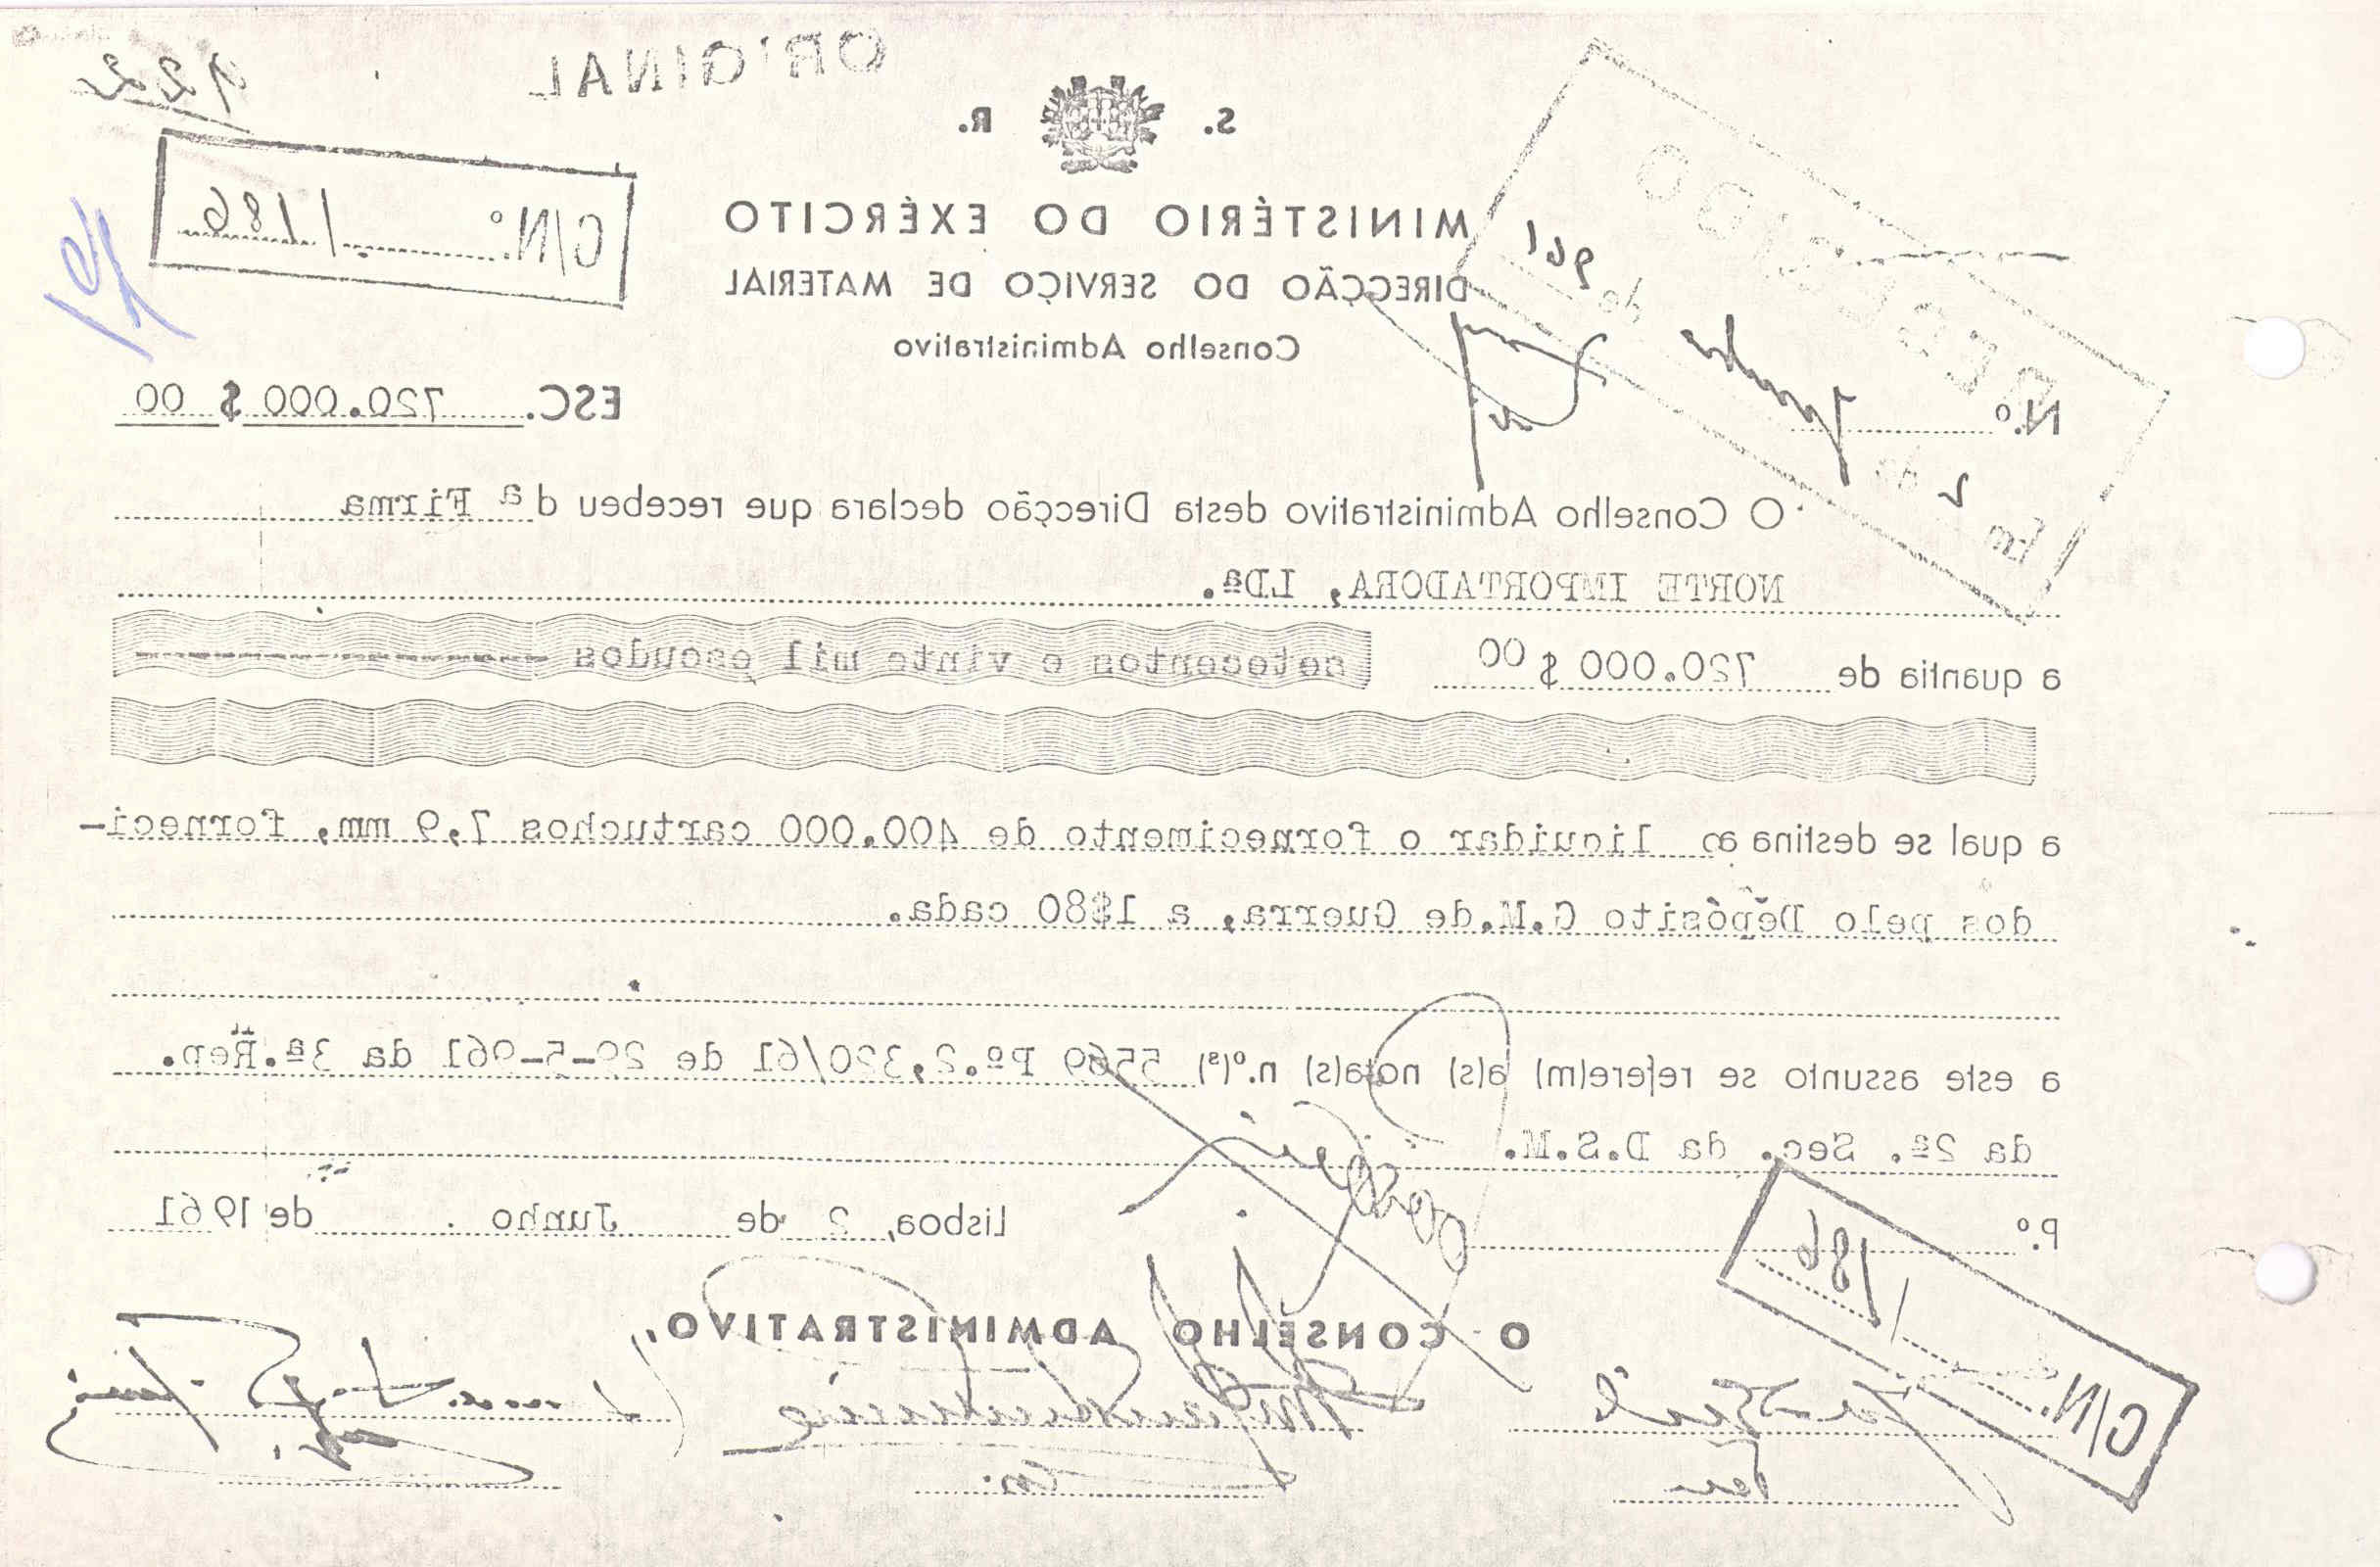 ORIGINAL
122
S. R.
C/N.º 1/186
MINISTÉRIO DO EXÉRCITO
DIRECÇÃO DO SERVIÇO DE MATERIAL
Conselho Administrativo
RECEBIDO
Em 2 de Junho de 961
N.º
ESC. 720.000 $ 00
O Conselho Administrativo desta Direcção declara que recebeu d ª Firma
NORTE IMPORTADORA, LDª.
a quantia de 720.000 $ 00 setecentos e vinte mil escudos
a qual se destina a liquidar o fornecimento de 400.000 cartuchos 7,9 mm, forneci-
dos pelo Depósito G.M.de Guerra, a 1$80 cada.
a este assunto se refere(m) a(s) nota(s) n.º(s) 5569 Pº.2,320/61 de 29-5-961 da 3ª.Rep.
da 2ª. Sec. da D.S.M.
P.º
Lisboa, 2 de Junho de 1961
C/N. 1/186
O CONSELHO ADMINISTRATIVO,